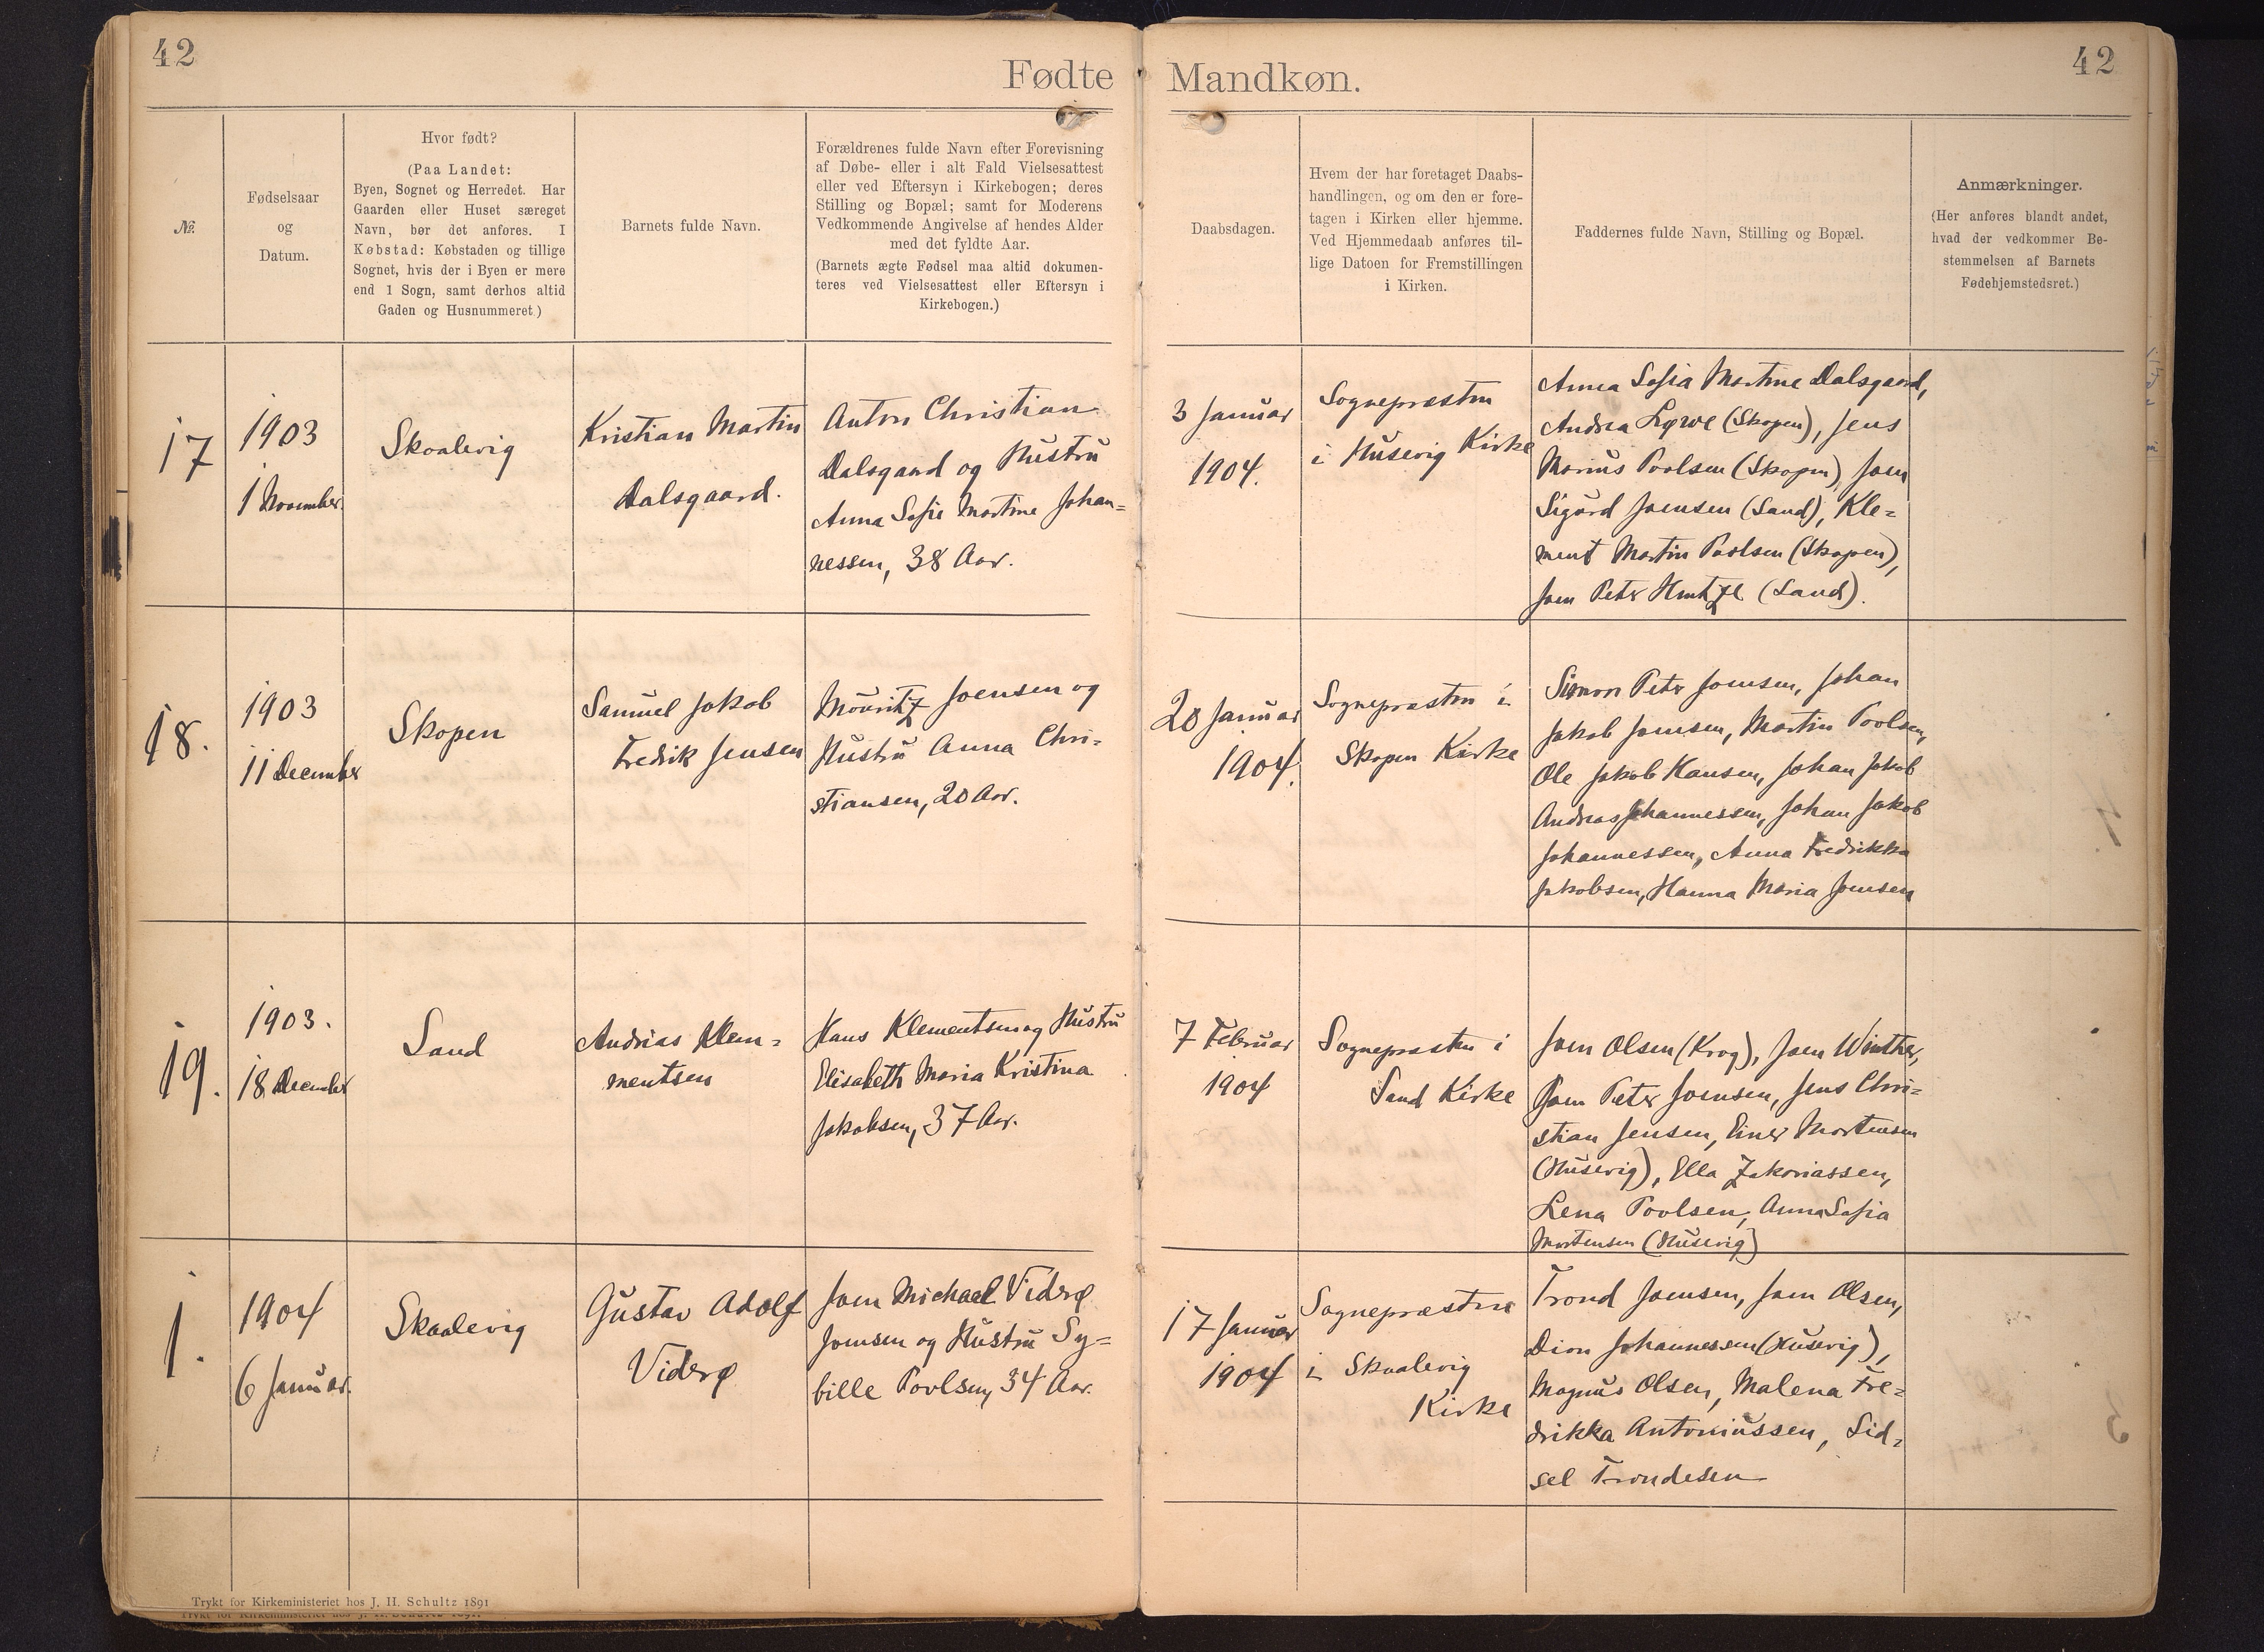 42
42
Fødte Mandkøn.
№
Fødselsaar
og
Datum.
Hvor født?
(Paa Landet:
Byen, Sognet og Herredet. Har
Gaarden eller Huset særeget
Navn, bør det anføres. I
Købstad: Købstaden og tillige
Sognet, hvis der i Byen er mere
end 1 Sogn, samt derhos altid
Gaden og Husnummeret.)
Barnets fulde Navn.
Forældrenes fulde Navn efter Forevisning
af Døbe- eller i alt Fald Vielsesattest
eller ved Eftersyn i Kirkebogen; deres
Stilling og Bopæl; samt for Moderens
Vedkommende Angivelse af hendes Alder
med det fyldte Aar.
(Barnets ægte Fødsel maa altid dokumen-
teres ved Vielsesattest eller Eftersyn i
Kirkebogen.)
Daabsdagen.
Hvem der har foretaget Daabs-
handlingen, og om den er fore-
tagen i Kirken eller hjemme.
Ved Hjemmedaab anføres til-
lige Datoen for Fremstillingen
i Kirken.
Faddernes fulde Navn, Stilling og Bopæl.
Anmærkninger.
(Her anføres blandt andet,
hvad der vedkommer Be-
stemmelsen af Barnets
Fødehjemstedsret.)
17
1903
1 November.
Skaalevig
Kristian Martin
Dalsgaard.
Anton Christian
Dalsgaard og Hustru
Anna Sofie Martine Johan=
nessen, 38 Aar.
3 Januar
1904.
Sognepræsten
i Husevig Kirke
Anna Sofia Martine Dalsgaard,
Andrea Løwe (Skopen), Jens
Marius Poulsen (Skopen), Joen
Sigurd Joensen (Sand), Kle=
ment Martin Poulsen (Skopen),
Joen Peter Hentze (Sand).
18.
1903
11 December
Skopen
Samuel Jakob
Fredrik Jensen
Mouritz Joensen og
Hustru Anna Chri-
stiansen, 20 Aar.
20 Januar
1904.
Sognepræsten i
Skopen Kirke
Simon Peter Joensen, Johan
Jakob Joensen, Martin Poulsen,
Ole Jakob Hansen, Johan Jakob
Andreas Johannessen, Johan Jakob
Johannessen, Anna Fredrikka
Jakobsen, Hanna Maria Joensen
19.
1903.
18 December
Sand
Andrias Klem=
mentsen
Hans Klementsen og Hustru
Elisabeth Maria Kristina
Jakobsen, 37 Aar.
7 Februar
1904
Sognepræsten i
Sand Kirke
Joen Olsen (Krog), Joen Winther,
Joen Peter Joensen, Jens Chri=
stian Jensen, Einer Mortensen
(Husevig), Ella Zakariassen,
Lena Poulsen, Anna Sofia
Mortensen (Husevig)
1.
1904
6 Januar.
Skaalevig
Gustav Adolf
Viderø
Joen Michael Viderø
Joensen og Hustru Sy=
bille Poulsen, 34 Aar.
17 Januar
1904
Sognepræsten
i Skaalevig
Kirke
Trond Joensen, Joen Olsen,
Dion Johannessen (Husevig),
Magnus Olsen, Malena Fre=
drikka Antoniussen, Sid=
sel Trondesen
Trykt for Kirkeministeriet hos J. H. Schultz 1891